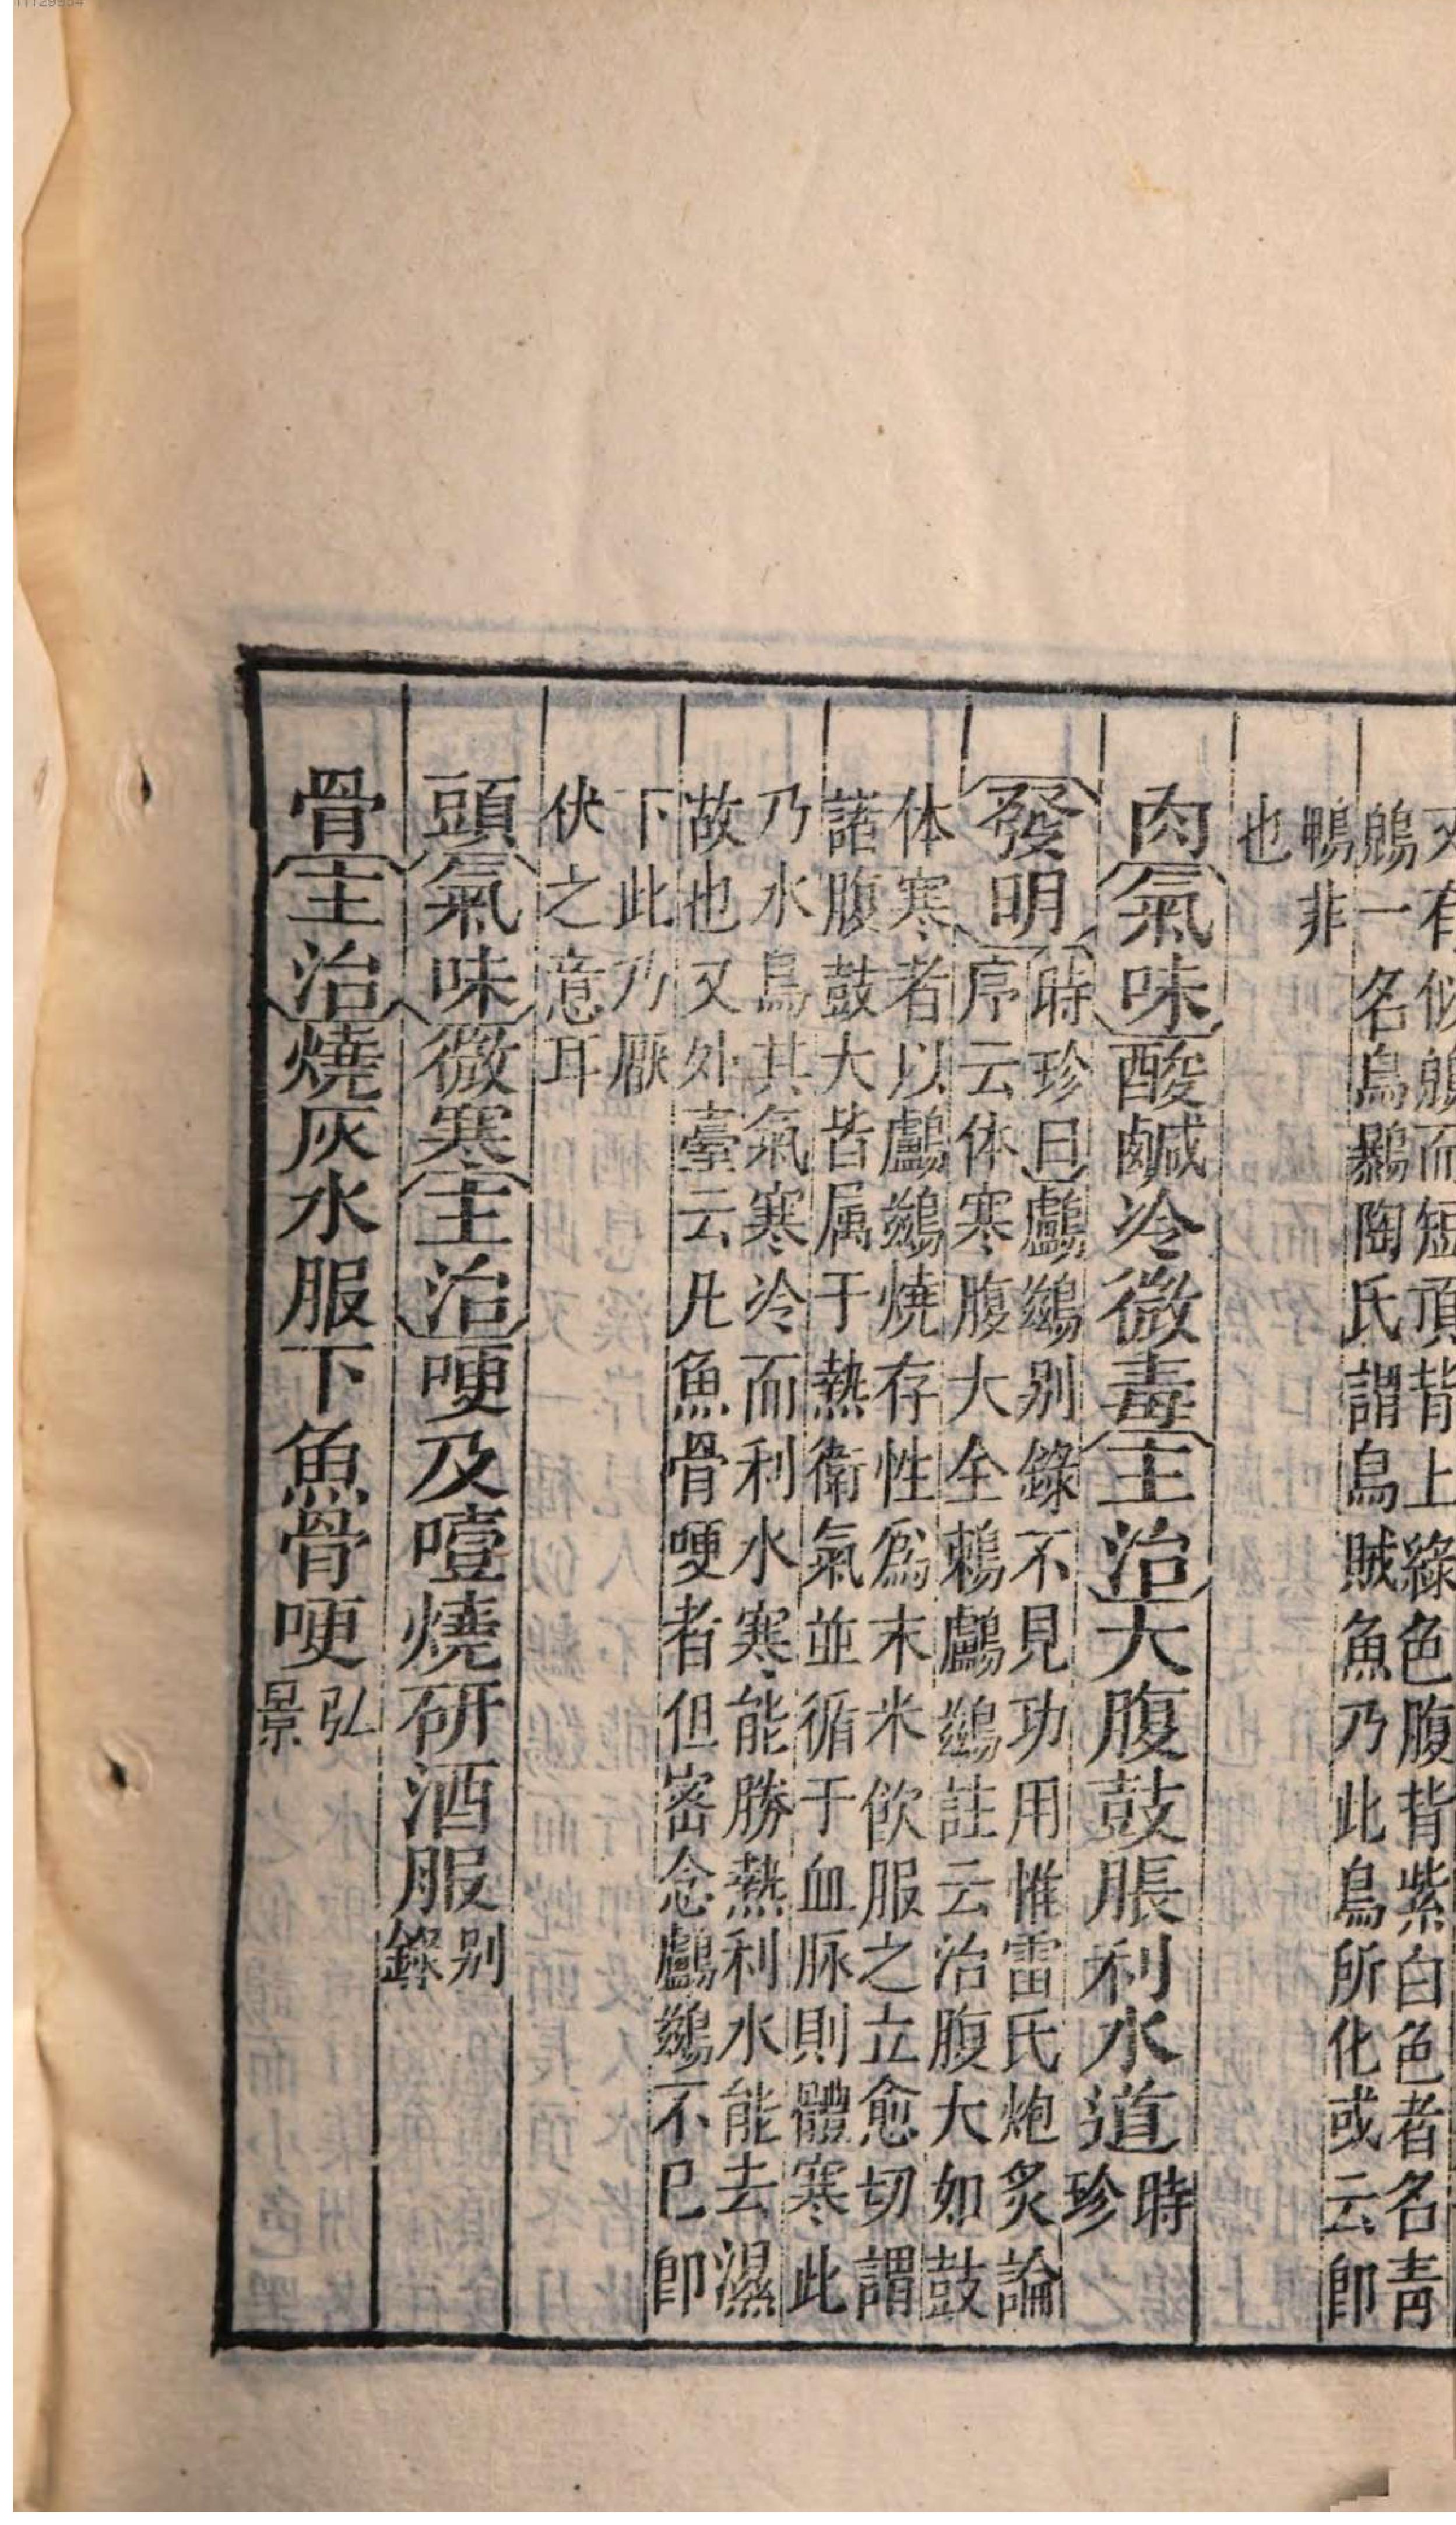 又有似鶂而短頂背上綠色腹背紫白色者名青
鶂一名烏鸔陶氏謂烏賊魚乃此鳥所化或云即
鴨非
也
肉氣味酸鹹冷微毒主治大腹鼓脹利水道時珍
發明時珍曰鸕鷀别錄不見功用惟雷氏炮炙論
序云体寒腹大全賴鸕鷀註云治腹大如鼓
体寒者以鸕鷀燒存性爲末米飲服之立愈切謂
諸腹鼓大皆属于熱衛氣並循于血脉則體寒此
乃水鳥其氣寒冷而利水寒能勝熱利水能去濕
故也又外臺云凡魚骨哽者但密念鸕鷀不已即
下此乃厭
伏之意耳
頭氣味微寒主治哽及噎燒研酒服别錄
骨主治燒灰水服下魚骨哽弘景